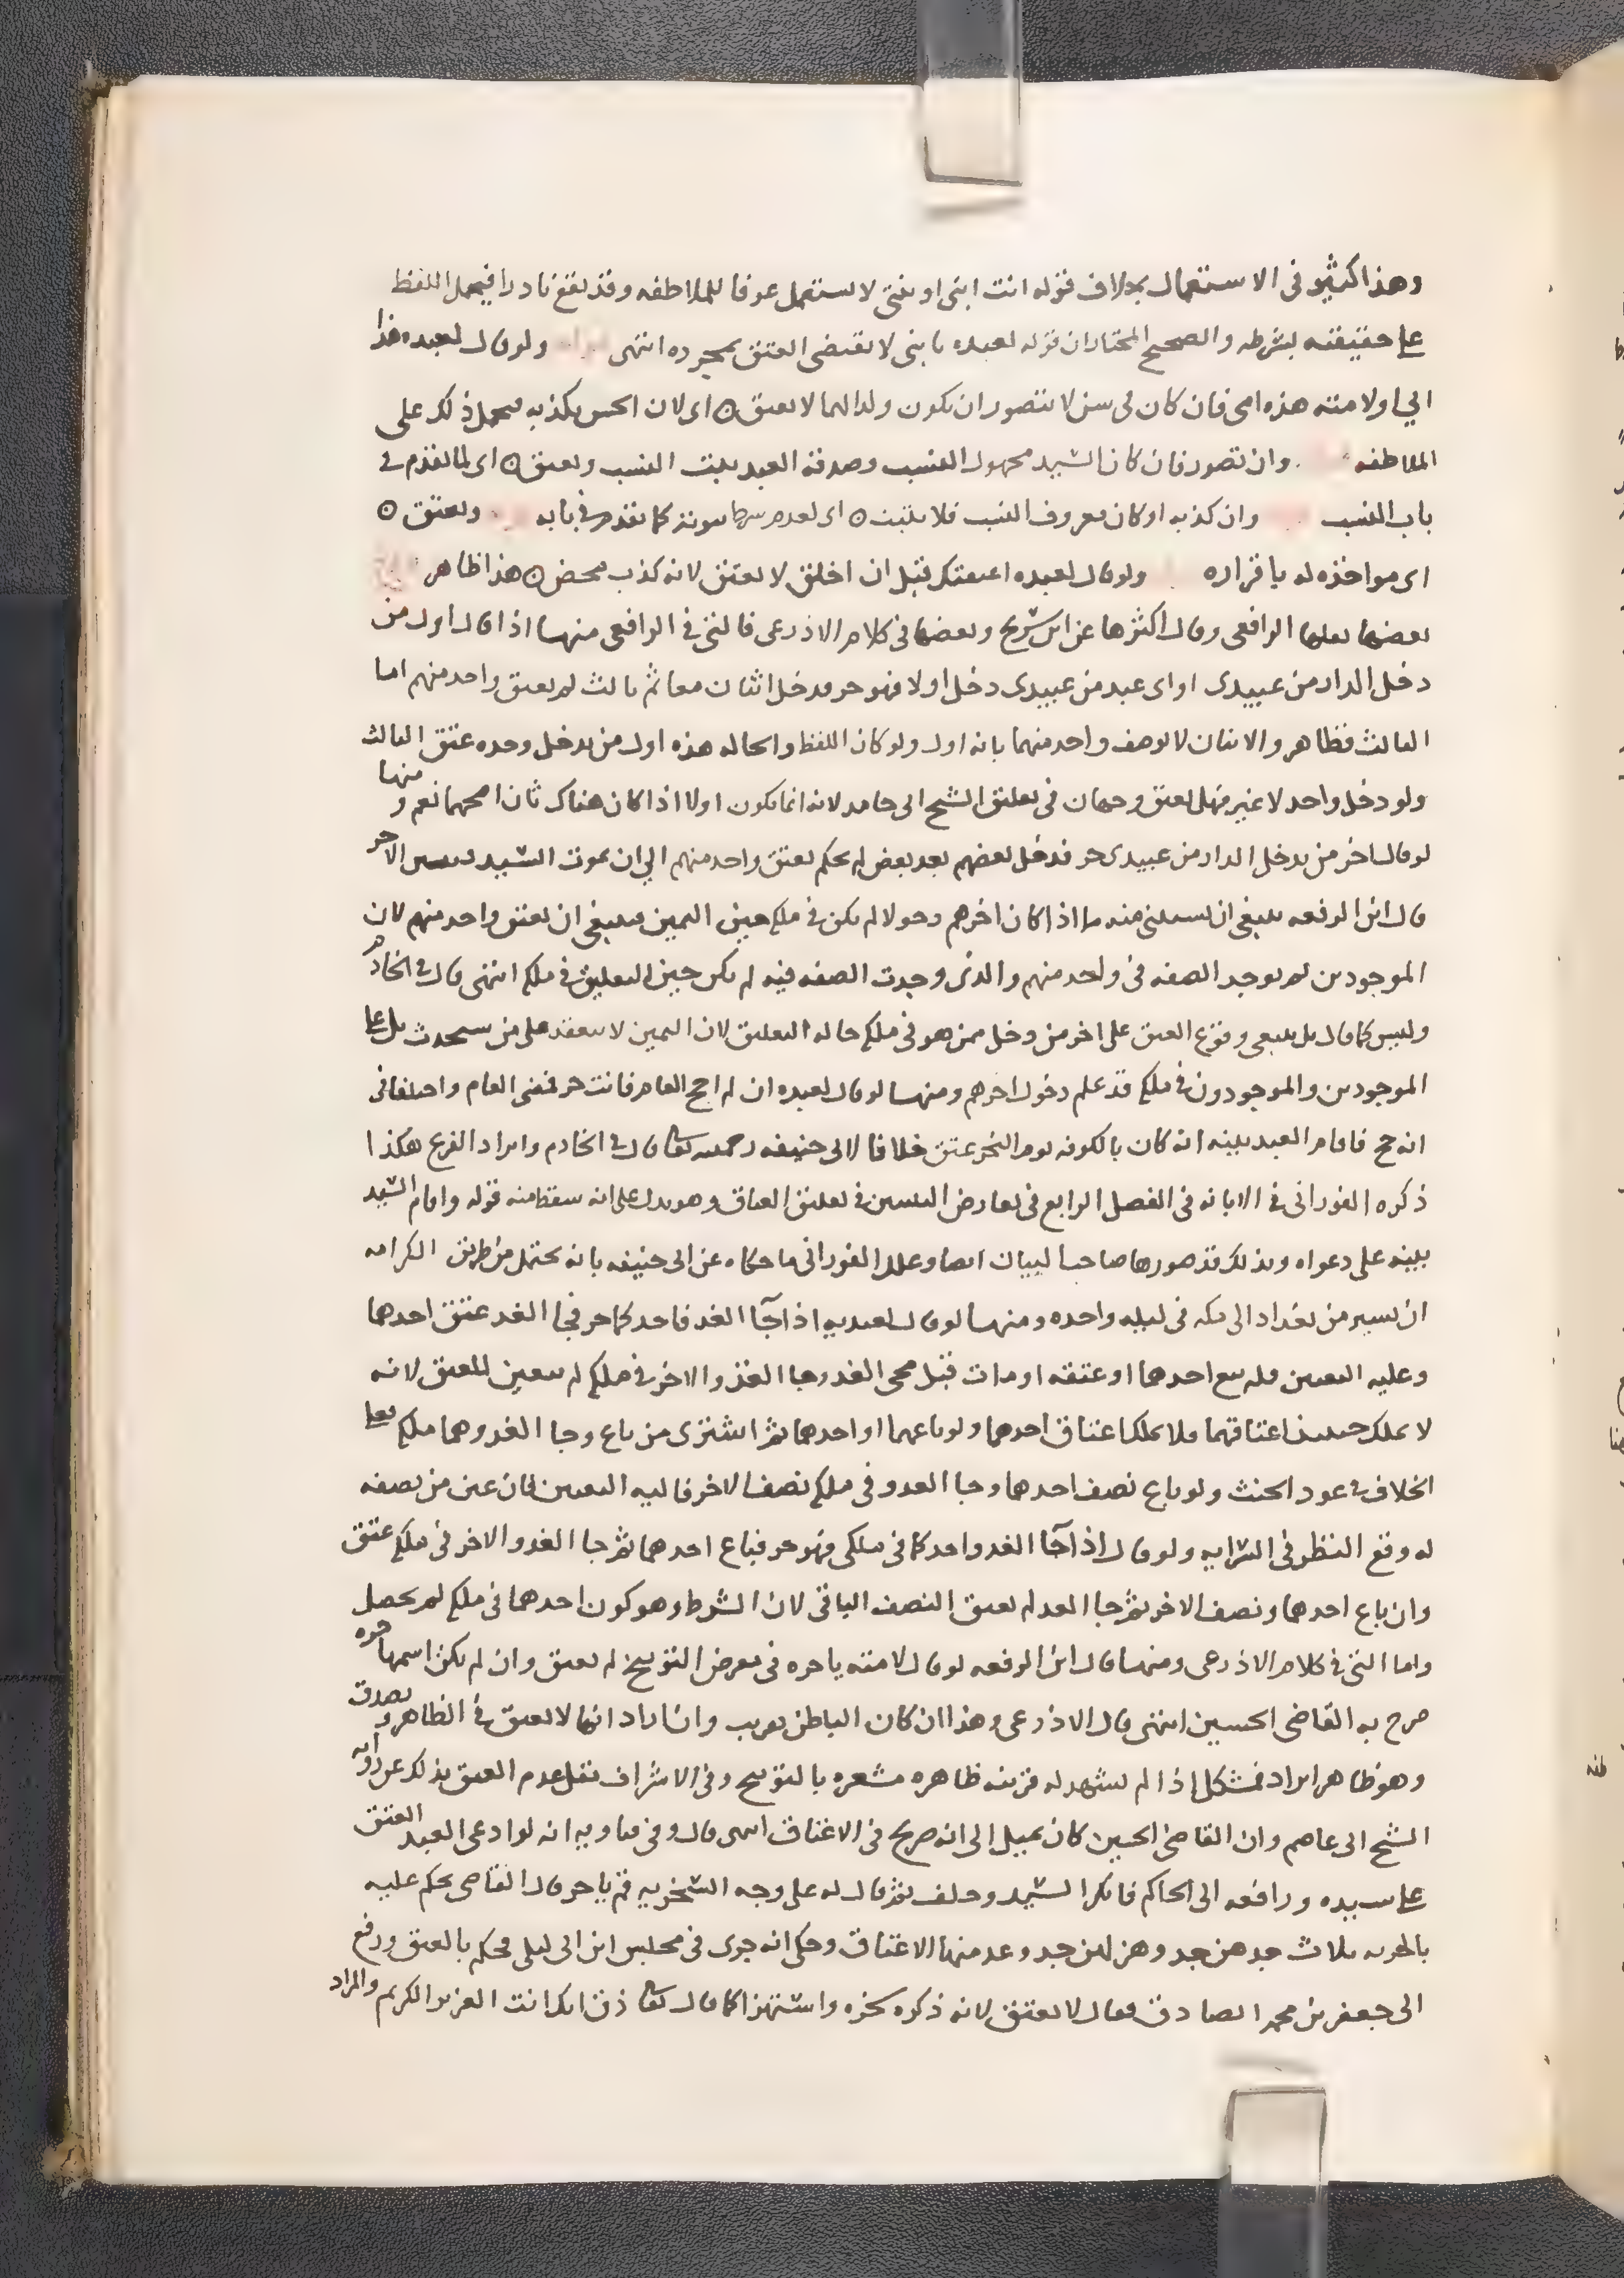 وهذا كثير في الاستعمال بخلاف قوله انت ابني او بنتي لا يستعمل عرفا للملاطفه وقد يقع نادرا فيحمل اللفظ
على حقيقته بشرطه والصحيح المختار ان قوله لعبده يا بني لا يقتضي العتق بمجرده انتهى ولو قال لعبده هذا
ابي او لامته هذه امي فان كان في سن لا يتصور ان يكون ولدا لهما لا يعتق اي لان الحس يكذبه فيحمل ذلك على
الملاطفه وان تصور فان كان السيد مجهول النسب وصدقه العبد يثبت النسب ويعتق اي لما تقدم في
باب النسب وان كذبه او كان معروف النسب فلا يثبت اي لعدم كما تقدم في بابه ويعتق
اي مواخذه له باقراره ولو قال لعبده اعتقتك قبل ان اخلق لا يعتق لانه كذب محض هذا ظاهر
بعضها نقلها الرافعي وقال اكثرها عن ابن سريج وبعضها في كلام الاذرعي فالتي في الرافعي منها اذا قال اول من
دخل الدار من عبيدي او اي عبد من عبيدي دخل اولا فهو حر فدخل اثنان معا ثم ثالث لم يعتق واحد منهم اما
الثالث فظاهر والاثنان لا يوصف واحد منهما بانه اول ولو كان اللفظ والحاله هذه اول من يدخل وحده عتق الثالث
ولو دخل واحد لا غير فهل يعتق وجهان في تعليق الشيخ ابي حامد لانه انما يكون اولا اذا كان هناك ثان اصحهما نعم ومنها
لو قال اخر من يدخل الدار من عبيدي حر فدخل بعضهم بعد بعض لم يحكم بعتق واحد منهم الي ان يموت السيد فيتبين الاخر
قال ابن الرفعه ينبغي ان يستثنى منه ما اذا كان اخرهم دخولا لم يكن في ملكه حين اليمين فينبغي ان يعتق واحد منهم لان
الموجودين لم توجد الصفه في واحد منهم والذي وجدت الصفه فيه لم يكن حين التعليق في ملكه انتهى قال في الخادم
وليس كما قال بل ينبغي وقوع العتق على اخر من دخل ممن هو في ملكه حاله التعليق لان اليمين لا تنعقد على من سيحدث بل على
الموجودين والموجودون في ملكه قد علم دخول اخرهم ومنها لو قال لعبده ان لم احج العام فانت حر فمضى العام واختلفا في
انه حج فاقام العبد بينه انه كان بالكوفه يوم النحر عتق خلافا لابي حنيفه رحمه الله تعالى قال في الخادم وايراد الفرع هكذا
ذكره الفوراني في الابانه في الفصل الرابع في تعارض البينتين في تعليق العتاق وهو يدل على انه سقط منه قوله واقام السيد
بينه على دعواه وبذلك قد صورها صاحب البيان ايضا وعلل الفوراني ما حكاه عن ابي حنيفه بانه يحتمل من طريق الكرامه
ان يسير من بغداد الى مكه في ليله واحده ومنها لو قال لعبديه اذا جآ الغد فاحدكما حر فجا الغد عتق احدهما
وعليه التعيين فلو باع احدهما او عتقه او مات قبل مجي الغد وجا الغد والاخر في ملكه لم يتعين للعتق لانه
لا يملك حينيذ اعتاقهما فلا يملك اعتاق احدهما ولو باعهما او احدهما ثم اشترى من باع وجا الغد وهما ملكه فعلى
الخلاف في عود الحنث ولو باع نصف احدهما وجا الغد وفي ملكه نصف الاخر فاليه التعيين فان عين من نصفه
له وقع النظر في السرايه ولو قال اذا جآ الغد واحدكما في ملكي فهو حر فباع احدهما ثم جا الغد والاخر في ملكه عتق
وان باع احدهما ونصف الاخر ثم جا الغد لم يعتق النصف الباقي لان الشرط وهو كون احدهما في ملكه لم يحصل
واما التي في كلام الاذرعي ومنها قال ابن الرفعه لو قال لامته يا حره في معرض التوبيخ لم تعتق وان لم يكن اسمها حره
صرح به القاضي الحسين انتهى قال الاذرعي وهذا ان كان الباطن فقريب وان اراد انها لا تعتق في الظاهر ويصدق
وهو ظاهر ايراد فمشكل اذا لم يشهد له قرينه ظاهره مشعره بالتوبيخ وفي الاشراف نقل عدم العتق بذلك عن
الشيخ ابي عاصم وان القاضي الحسين كان يميل الى انه صريح في الاعتاق انتهى قال وفي فتاويه انه لو ادعى العبد العتق
على سيده ورافعه الى الحاكم فانكر السيد وحلف ثم قال له على وجه السخريه قم يا حر قال القاضي يحكم عليه
بالحريه ثلاث جدهن جد وهزلهن جد وعد منها الاعتاق وحكي انه جرى في مجلس ابن ابي ليلى فحكم بالعتق ورفع
الى جعفر بن محمد الصادق فقال لا يعتق لانه ذكره سخره واستهزا كما قال تعالى ذق انك انت العزيز الكريم والمراد